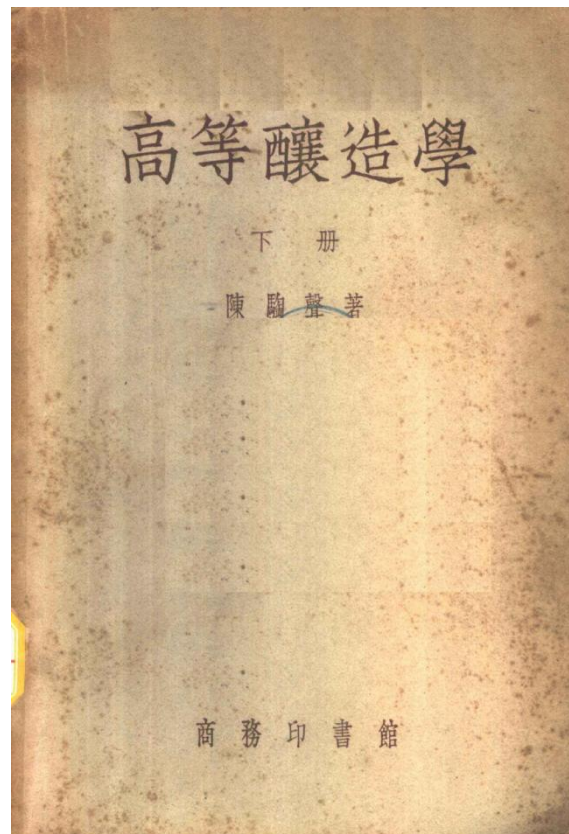 高等釀造學
下册
陳騊聲著
商務印書館